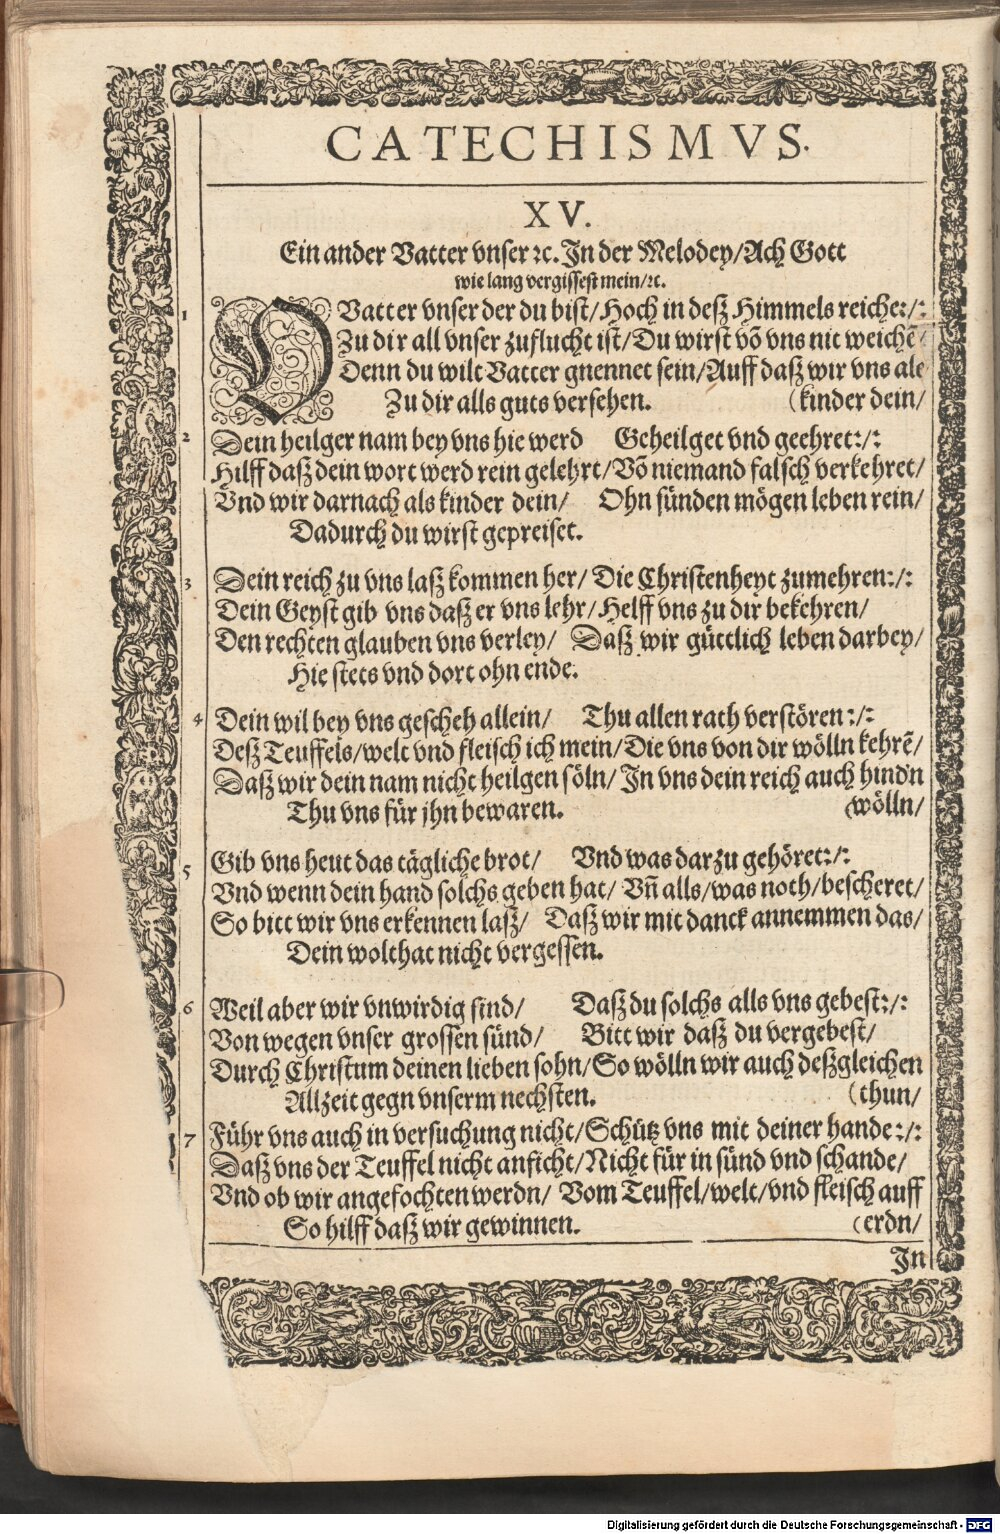 CATECHISMVS.
XV.
Ein ander Vatter vnser ꝛc. In der Melodey/Ach Gott
wie lang vergissest mein/ꝛc.
1 O Vatter vnser der du bist/Hoch in desz Himmels reiche:/:
Zu dir all vnser zuflucht ist/Du wirst võ vns nit weichẽ/
Denn du wilt Vatter gnennet sein/Auff dasz wir vns als
Zu dir alls guts versehen. (kinder dein/
2 Dein heilger nam bey vns hie werd Geheilget vnd geehret:/:
Hilff dasz dein wort werd rein gelehrt/Võ niemand falsch verkehret/
Vnd wir darnach als kinder dein/ Ohn sünden mögen leben rein/
Dadurch du wirst gepreiset.
3 Dein reich zu vns lasz kommen her/ Die Christenheyt zumehren:/:
Dein Geyst gib vns dasz er vns lehr/ Helff vns zu dir bekehren/
Den rechten glauben vns verley/ Dasz wir güttlich leben darbey/
Hie stets vnd dort ohn ende.
4 Dein wil bey vns gescheh allein/ Thu allen rath verstören:/:
Desz Teuffels/welt vnd fleisch ich mein/Die vns von dir wölln kehrẽ/
Dasz wir dein nam nicht heilgen söln/ In vns dein reich auch hind'n
Thu vns für jhn bewaren. (wölln/
5 Gib vns heut das tägliche brot/ Vnd was darzu gehöret:/:
Vnd wenn dein hand solchs geben hat/ Vñ alls/was noth/bescheret/
So bitt wir vns erkennen lasz/ Dasz wir mit danck annemmen das/
Dein wolthat nicht vergessen.
6 Weil aber wir vnwirdig sind/ Dasz du solchs alls vns gebest:/:
Von wegen vnser grossen sünd/ Bitt wir dasz du vergebest/
Durch Christum deinen lieben sohn/So wölln wir auch deszgleichen
Allzeit gegn vnserm nechsten. (thun/
7 Führ vns auch in versuchung nicht/Schütz vns mit deiner hande:/:
Dasz vns der Teuffel nicht anficht/Nicht für in sünd vnd schande/
Vnd ob wir angefochten werdn/ Vom Teuffel/welt/vnd fleisch auff
So hilff dasz wir gewinnen. (erdn/
In
Digitalisierung gefördert durch die Deutsche Forschungsgemeinschaft - DFG